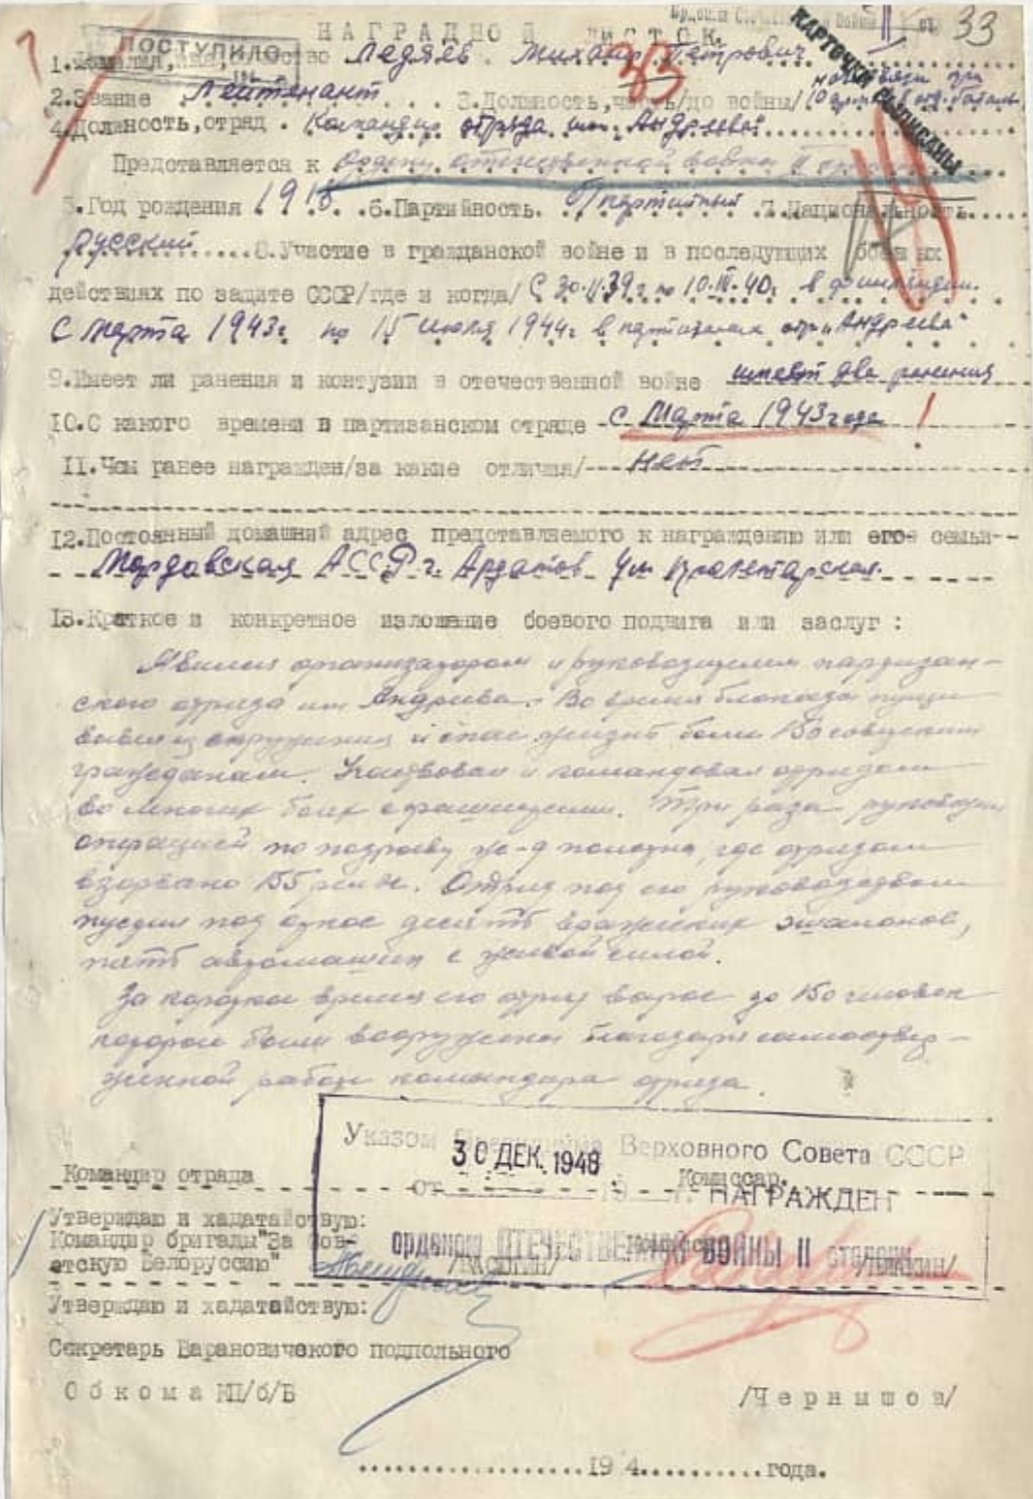 33
НАГРАДНОЙ ЛИСТОК.
ПОСТУПИЛО
КАРТОЧКА
1. Фамилия, имя, отчество Ледяев Михаил Петрович
33
2.Звание Лейтенант 3.Должность,часть/до войны/
4.Должность,отряд . Командир отряда им. Андреева
Представляется к Ордену отечественной войны II
5.Год рождения .191 . .6.Партийность. б/партийный .7.Национальность
русский 8.Участие в гражданской войне и в последующих боевых
действиях по защите СССР/где и когда/ С 30.11.39г по 10.III.40г. в финляндии
С марта 1943г. по 15 июля 1944г в партизанск отр. "Андреева"
9.Имеет ли ранения и контузии в отечественной войне имеет два ранения
10.С какого времени в партизанском отряде С Марта 1943 года !
11.Чем ранее награжден/за какие отличия/ Нет
12.Постоянный домашний адрес представляемого к награждению или его семьи
Мордовская АССР г. Ардатов ул Пролетарская.
13.Краткое и конкретное изложение боевого подвига или заслуг :
Явился организатором и руководителем партизан-
ского отряда им Андреева. Во время блокады пущи
вывел из окружения и спас жизнь более 150 советским
гражданам. Участвовал и командовал отрядом
во многих боях с фашистами. Три раза руководил
операцией по подрыву ж-д полотна, где отрядом
взорвано 155 рельс. Отряд под его руководством
пустил под откос десять вражеских эшалонов,
пять автомашин с живой силой.
За короткое время его отряд вырос до 150 человек
которые были вооружены благодаря самоотвер-
женной работе командира отряда.
Указом Президиума Верховного Совета СССР
30 ДЕК. 1948
Командир отряда Комиссар.
от 19 г. НАГРАЖДЕН
Утверждаю и хадатайствую:
Командир бригады "За Сов-
орденом ОТЕЧЕСТВЕННОЙ ВОЙНЫ II степени
етскую Белоруссию"
Утверждаю и хадатайствую:
Секретарь Барановичского подпольного
Обкома КП/б/Б /Чернышов/
194 года.